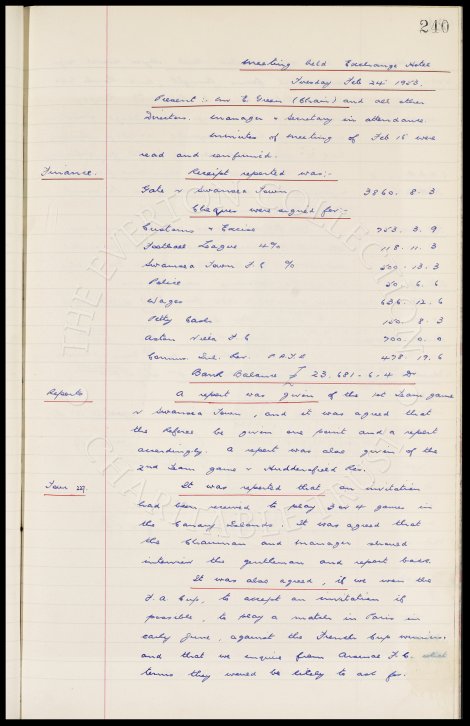 240
Meeting held Exchange Hotel
Tuesday Feb 24th 1953.
Present :- Mr E Green (Chair) and all other
Directors. Manager & Secretary in attendance.
Minutes of meeting of Feb 15 were
read and confirmed.
Finance. Receipt reported was:-
Gate v Swansea Town 3860. 8. 3
Cheques were signed for:-
Customs & Excise 753. 3. 9
Football League 4% 118. 11. 3
Swansea Town F.C % 500. 13. 3
Police 50. 6. 6
Wages 636. 12. 6
Petty Cash 150. 8. 3
Aston Villa F.C 700. 0. 0
Commr. Inl. Rev. P.A.Y.E 478. 19. 6
Bank Balance £ 23,681-6-4 Dr
Reports A report was given of the 1st Team game
v Swansea Town, and it was agreed that
the Referee be given one point and a report
accordingly. A report was also given of the
2nd Team game v Huddersfield Res.
Tour 227. It was reported that an invitation
had been received to play 3 or 4 games in
the Canary Islands. It was agreed that
the Chairman and Manager should
interview the gentleman and report back.
It was also agreed, if we won the
F.A Cup, to accept an invitation if
possible, to play a match in Paris in
early June, against the French Cup winners.
and that we enquire from Arsenal F.C. what
terms they would be likely to ask for.
© THE EVERTON COLLECTION
CHARITABLE TRUST